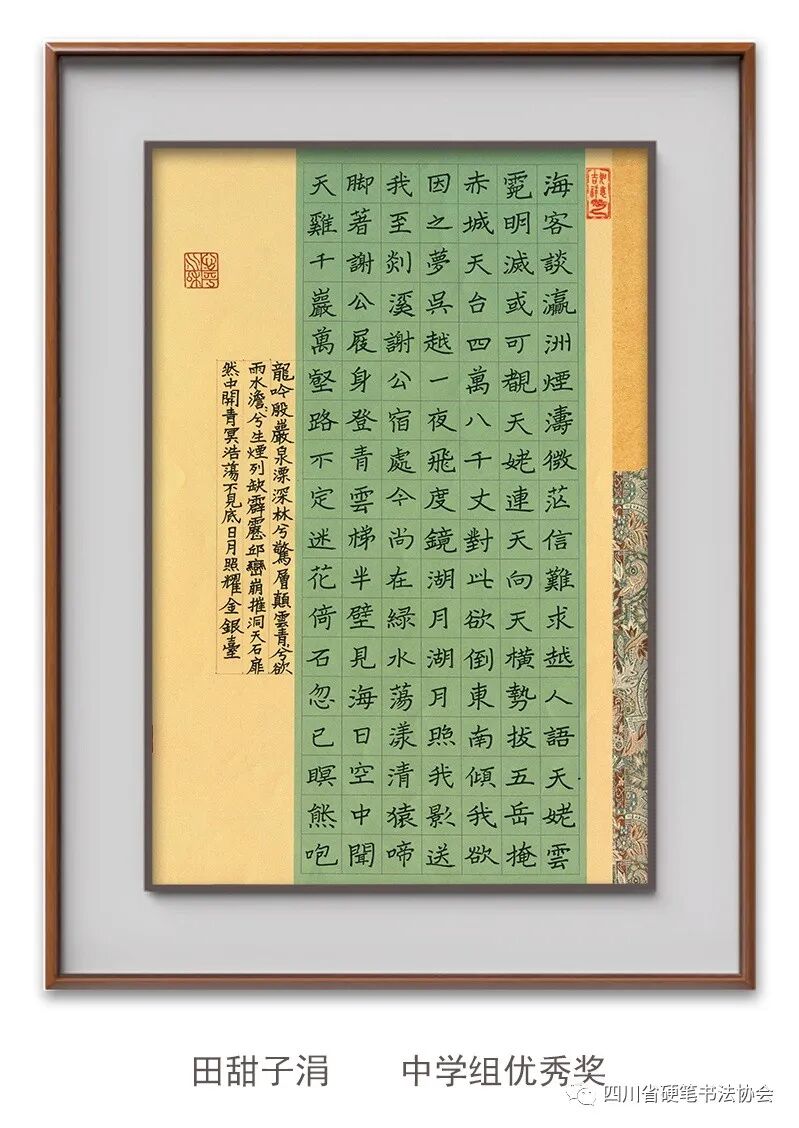 海客談瀛洲煙濤微茫信難求越人語天姥雲
霓明滅或可覩天姥連天向天橫勢拔五岳掩
赤城天台四萬八千丈對此欲倒東南傾我欲
因之夢吳越一夜飛度鏡湖月湖月照我影送
我至剡溪謝公宿處今尚在綠水蕩漾清猿啼
脚著謝公屐身登青雲梯半壁見海日空中聞
天雞千巖萬壑路不定迷花倚石忽已暝熊咆
龍吟殷巖泉溧深林兮驚層顛雲青兮欲
雨水澹兮生煙列缺霹靂邱巒崩摧洞天石扉
然中開青冥浩蕩不見底日月照耀金銀臺
田甜子涓 中学组优秀奖
四川省硬笔书法协会